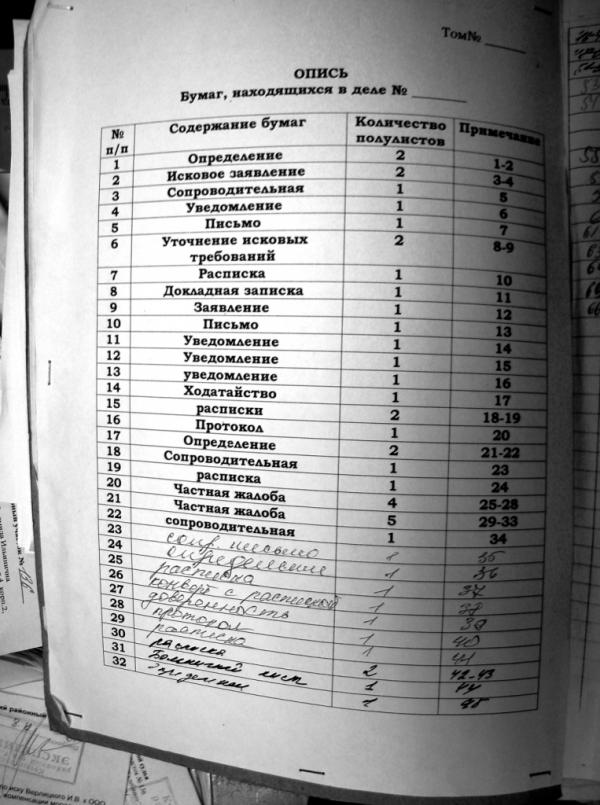 Том№
ОПИСЬ
Бумаг, находящихся в деле №
№ п/п Содержание бумаг Количество полулистов Примечание
1 Определение 2 1-2
2 Исковое заявление 2 3-4
3 Сопроводительная 1 5
4 Уведомление 1 6
5 Письмо 1 7
6 Уточнение исковых требований 2 8-9
7 Расписка 1 10
8 Докладная записка 1 11
9 Заявление 1 12
10 Письмо 1 13
11 Уведомление 1 14
12 Уведомление 1 15
13 уведомление 1 16
14 Ходатайство 1 17
15 расписки 2 18-19
16 Протокол 1 20
17 Определение 2 21-22
18 Сопроводительная 1 23
19 расписка 1 24
20 Частная жалоба 4 25-28
21 Частная жалоба 5 29-33
22 сопроводительная 1 34
23 сопр письмо 1 35
24 определение 1 36
25 расписка 1 37
26 конверт с распиской 1 38
27 доверенность 1 39
28 протокол 1 40
29 расписка 1 41
30 расписки 2 42-43
31 Больничный лист 1 44
32 1 45
ий районный
иску Верлицкого И.В. к ООО
компенсации